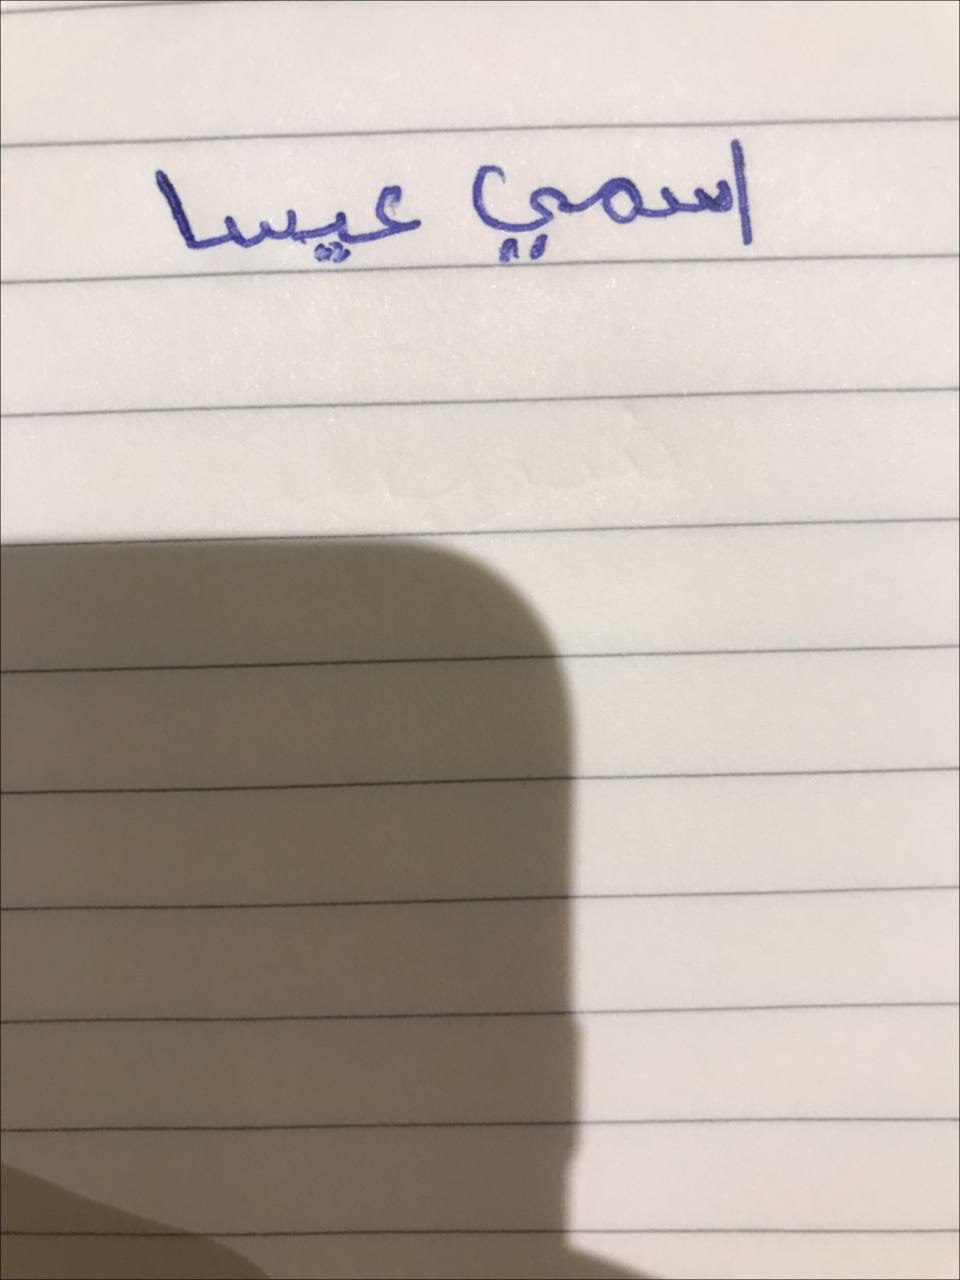 اسمي عيسا